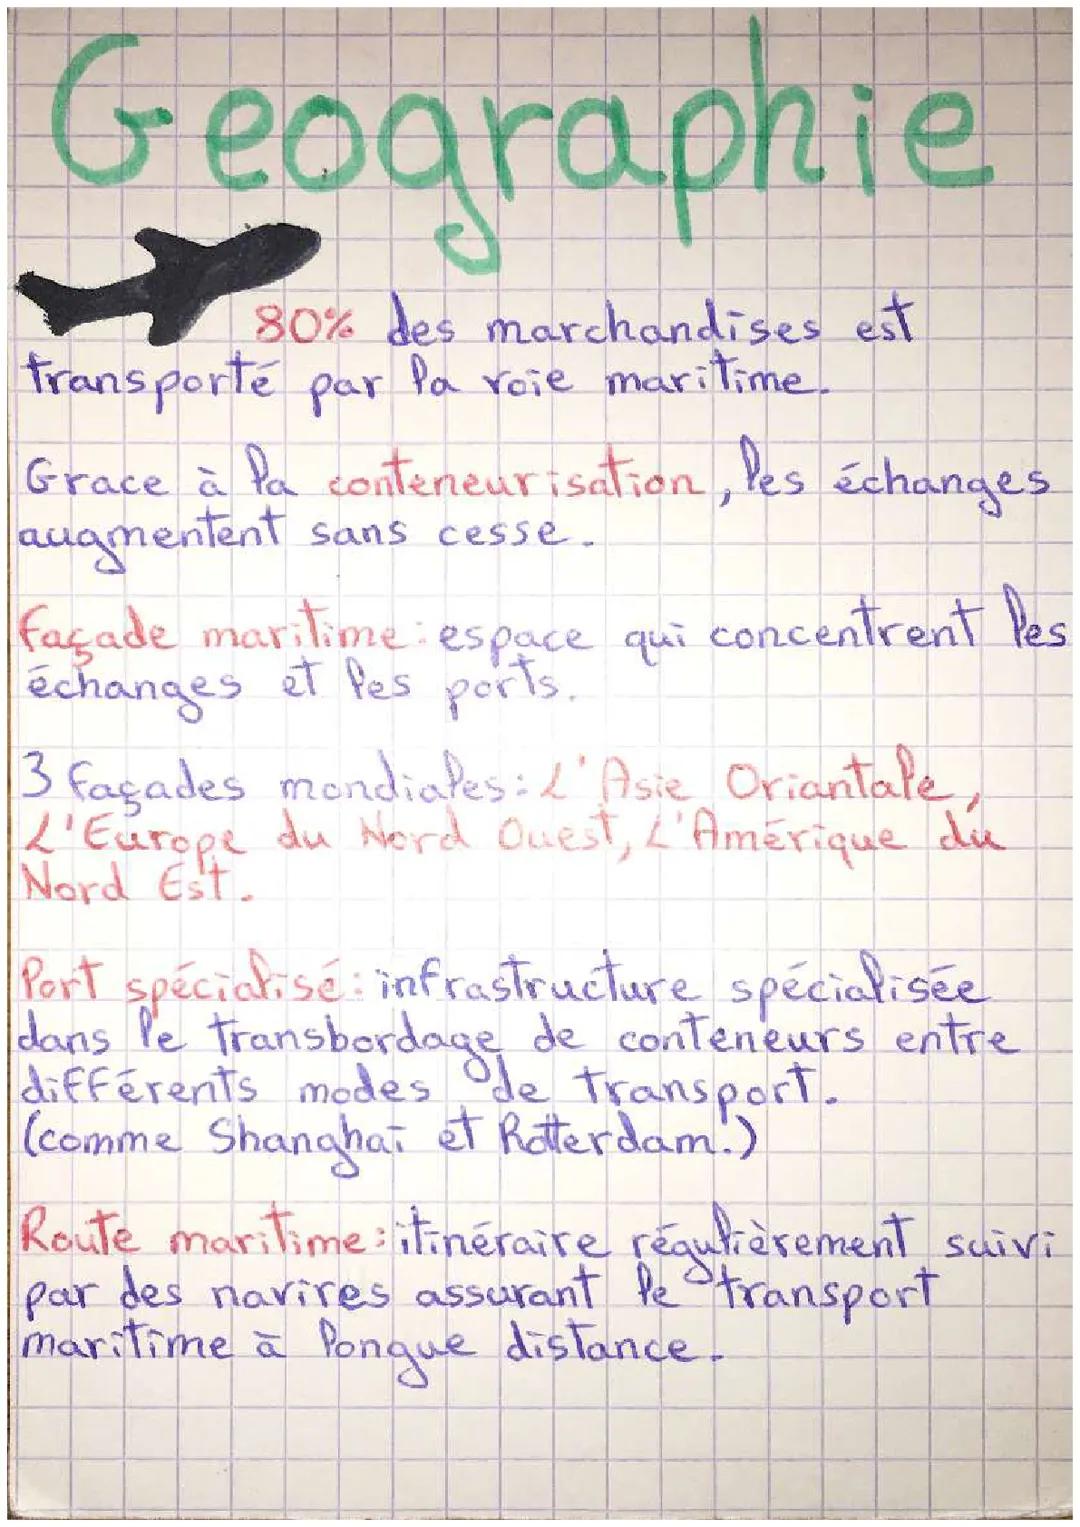 Geographie
80% des marchandises est
transporté par la voie maritime.
Grace à la conteneurisation, les échanges
augmentent sans cesse.
façade maritime: espace qui concentrent les
échanges et les ports.
3 façades mondiales: L'Asie Oriantale,
L'Europe du Nord Ouest, L'Amérique du
Nord Est.
Port spécialisé: infrastructure spécialisée
dans le transbordage de conteneurs entre
différents modes de transport.
(comme Shanghaï et Rotterdam.)
Route maritime: itinéraire régulièrement suivi
par des navires assurant le transport
maritime à longue distance.